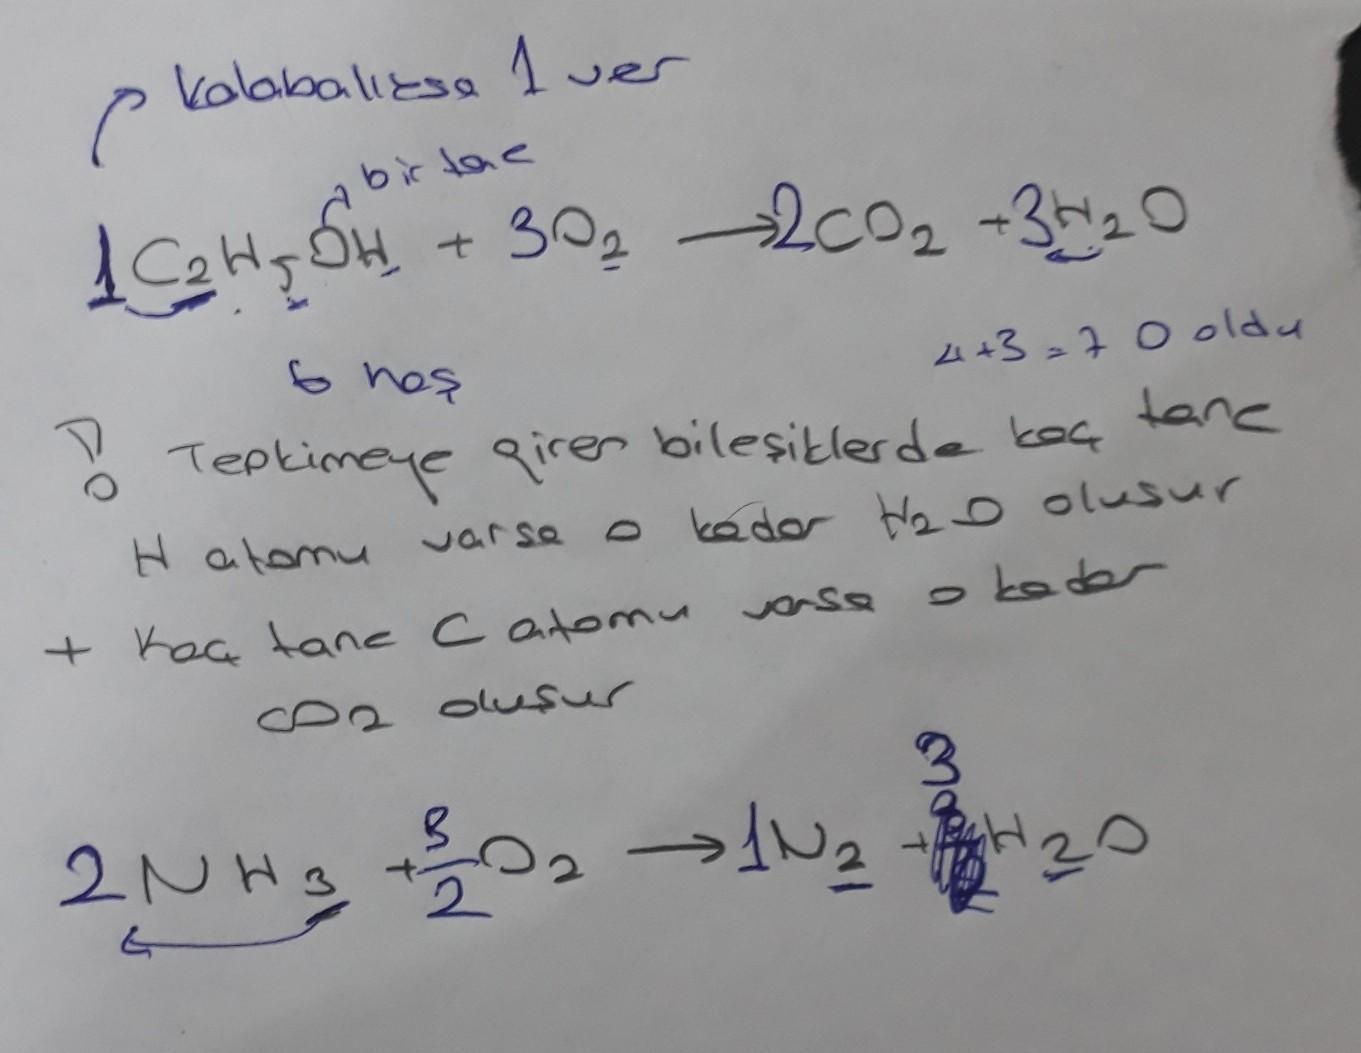 Kalabalıksa 1 ver
bir tane
1C2H5OH + 3O2 → 2CO2 + 3H2O
4+3=7 O oldu
6 haş
! Tepkimeye giren bileşiklerde kaç tane
H atomu varsa o kadar H2O oluşur
+ Kaç tane C atomu varsa o kadar
CO2 oluşur
3
2NH3 + 3/2 O2 → 1N2 + H2O